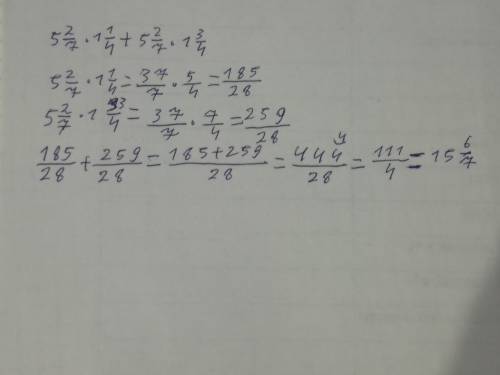 5 2/7 · 1 1/4 + 5 2/7 · 1 3/4
5 2/7 · 1 1/4 = 37/7 · 5/4 = 185/28
5 2/7 · 1 3/4 = 37/7 · 7/4 = 259/28
185/28 + 259/28 = 185+259/28 = 444/28 = 111/4 = 15 6/7